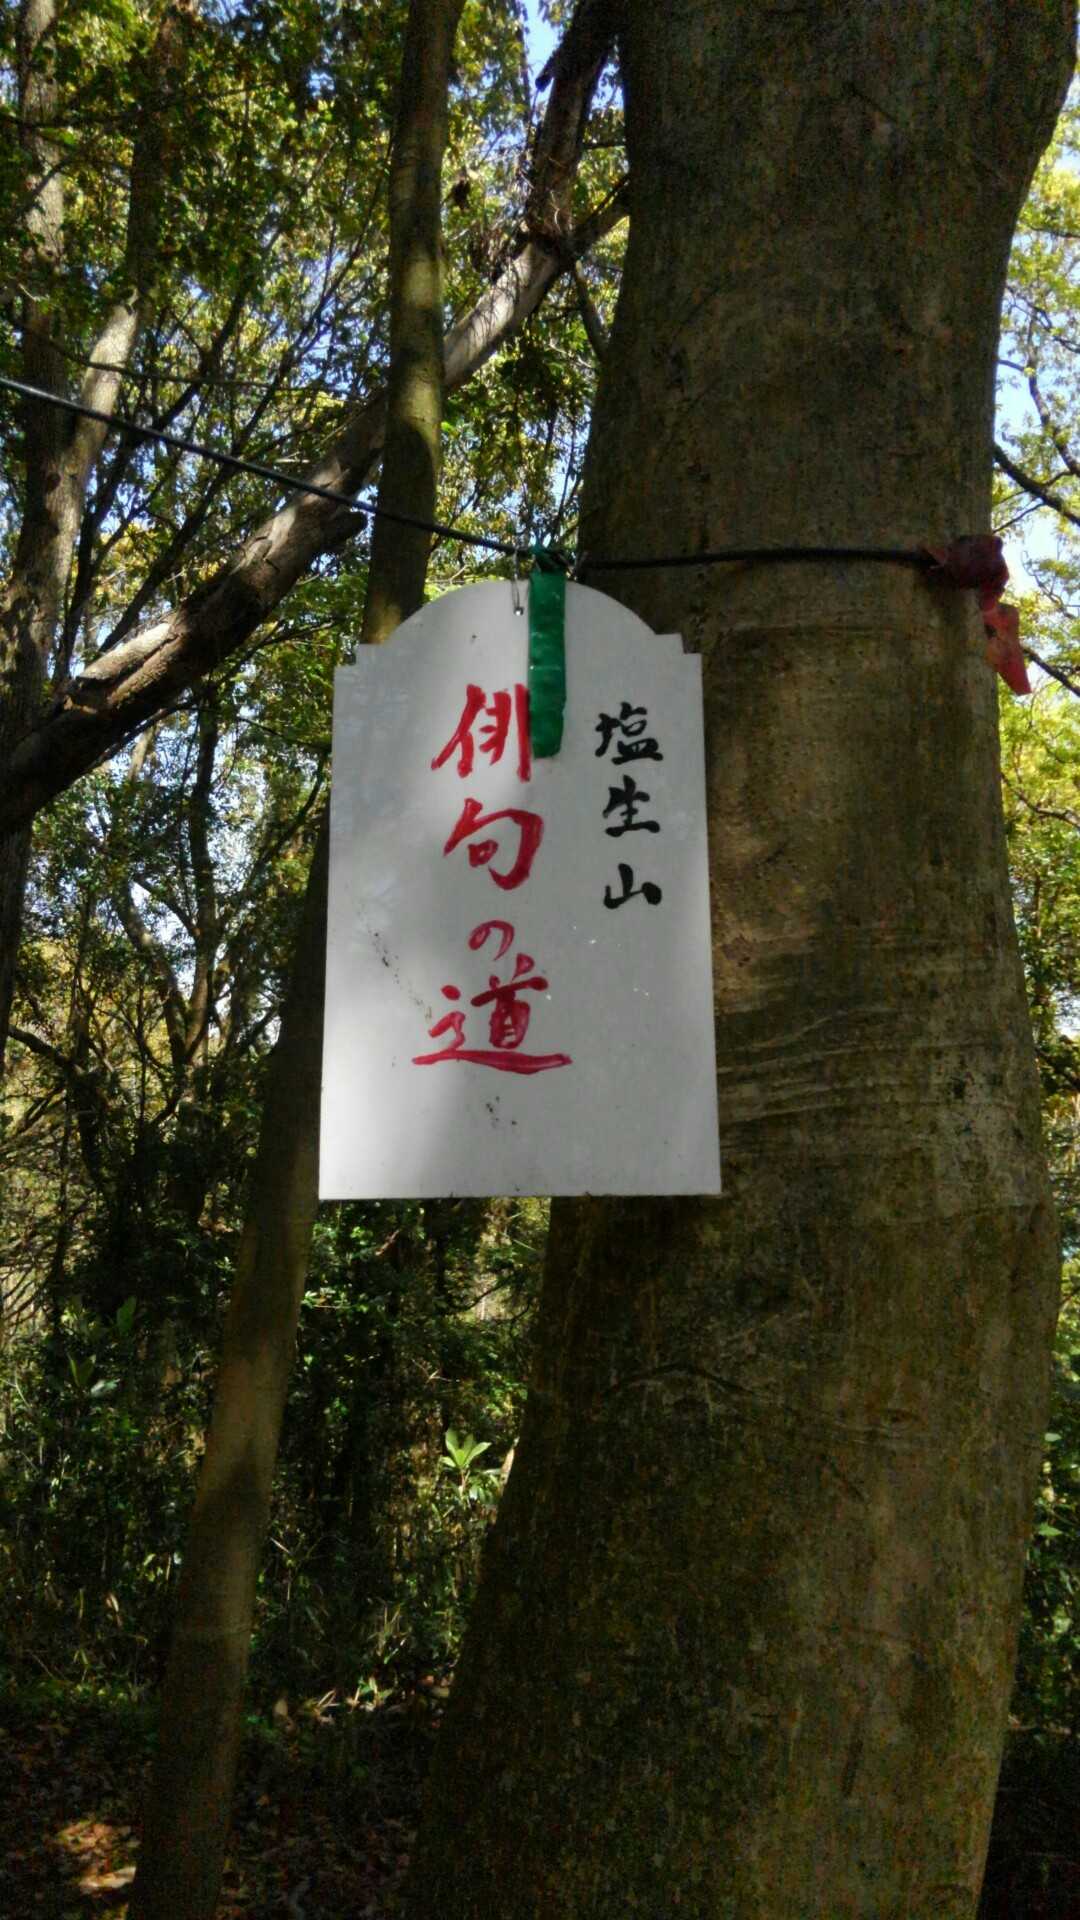 塩生山
俳句の道